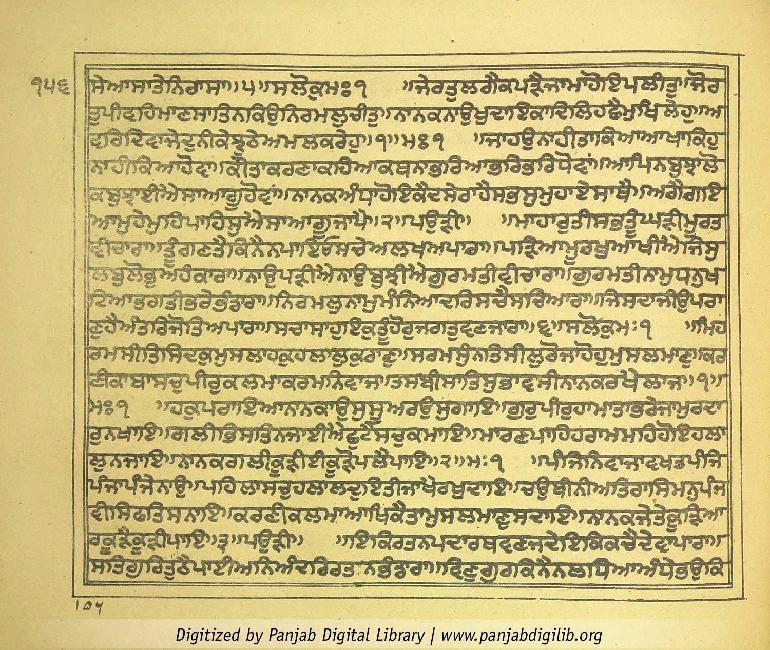 ੧੫੬
ਸੇਆਸਾਤੇਨਿਰਾਸਾ॥੫॥ਸਲੋਕੁਮਃ੧ ॥ਜੇਰਤੁਲਗੈਕਪੜੈਜਾਮਾਹੋਇਪਲੀਤੁ॥ਜੋਰ
ਤੁਪੀਵਹਿਮਾਣਸਾਤਿਨਕਿਉਨਿਰਮਲੁਚੀਤੁ॥ਨਾਨਕਨਾਉਖੁਦਾਇਕਾਦਿਲਿਹਛੈਮੁਖਿਲੇਹੁ॥ਅ
ਵਰਿਦਿਵਾਜੇਦੁਨੀਕੇਝੂਠੇਅਮਲਕਰੇਹੁ॥੧॥ਮਃ੧ ॥ਜਾਹਉਨਾਹੀਤਾਕਿਆਆਖਾਕਿਹੁ
ਨਾਹੀਕਿਆਹੋਵਾ॥ਕੀਤਾਕਰਣਾਕਹਿਆਕਥਨਾਭਰਿਆਭਰਿਭਰਿਧੋਵਾਂ॥ਆਪਿਨਬੁਝਾਲੋ
ਕਬੁਝਾਈਐਸਾਆਗੂਹੋਵਾਂ॥ਨਾਨਕਅੰਧਾਹੋਇਕੈਦਸੇਰਾਹੈਸਭਸੁਮੁਹਾਏਸਾਥੈ॥ਅਗੈਗਇ
ਆਮੁਹੇਮੁਹਿਪਾਹਿਸੁਐਸਾਆਗੂਜਾਪੈ॥੨॥ਪਉੜੀ॥ ॥ਮਾਹਾਰੁਤੀਸਭਤੂੰਘੜੀਮੂਰਤ
ਵੀਚਾਰਾ॥ਤੂੰਗਣਤੈਕਿਨੈਨਪਾਇਓਸਚੇਅਲਖਅਪਾਰਾ॥ਪੜਿਆਮੂਰਖੁਆਖੀਐਜਿਸੁ
ਲਬੁਲੋਭੁਅਹੰਕਾਰਾ॥ਨਾਉਪੜੀਐਨਾਉਬੁਝੀਐਗੁਰਮਤੀਵੀਚਾਰਾ॥ਗੁਰਮਤੀਨਾਮੁਧਨੁਖ
ਟਿਆਭਗਤੀਭਰੇਭੰਡਾਰਾ॥ਨਿਰਮਲੁਨਾਮੁਮੰਨਿਆਦਰਿਸਚੈਸਚਿਆਰਾ॥ਜਿਸਦਾਜੀਉਪਰਾ
ਣੁਹੈਅੰਤਰਿਜੋਤਿਅਪਾਰਾ॥ਸਚਾਸਾਹੁਇਕੁਤੂੰਹੋਰੁਜਗਤੁਵਣਜਾਰਾ॥੬॥ਸਲੋਕੁਮਃ੧ ॥ਮਿਹ
ਰਮਸੀਤਿਸਿਦਕੁਮੁਸਲਾਹਕੁਹਲਾਲੁਕੁਰਾਣੁ॥ਸਰਮਸੁੰਨਤਿਸੀਲੁਰੋਜਾਹੋਹੁਮੁਸਲਮਾਣੁ॥ਕਰ
ਣੀਕਾਬਾਸਚੁਪੀਰੁਕਲਮਾਕਰਮਨਿਵਾਜ॥ਤਸਬੀਸਾਤਿਸੁਭਾਵਸੀਨਾਨਕਰਖੈਲਾਜ॥੧॥
ਮਃ੧ ॥ਹਕੁਪਰਾਇਆਨਾਨਕਾਉਸੁਸੂਅਰਉਸੁਗਾਇ॥ਗੁਰੁਪੀਰੁਹਾਮਾਤਾਭਰੇਜਾਮੁਰਦਾ
ਰੁਨਖਾਇ॥ਗਲੀਭਿਸਤਿਨਜਾਈਐਛੁਟੈਸਚੁਕਮਾਇ॥ਮਾਰਣਪਾਹਿਹਰਾਮਮਹਿਹੋਇਹਲਾ
ਲੁਨਜਾਇ॥ਨਾਨਕਗਲੀਕੂੜੀਈਕੂੜੋਪਲੈਪਾਇ॥੨॥ਮਃ੧ ॥ਪੰਜਿਨਿਵਾਜਾਵਖਤਪੰਜਿ
ਪੰਜਾਪੰਜੇਨਾਉ॥ਪਹਿਲਾਸਚੁਹਲਾਲਦੁਇਤੀਜਾਖੈਰਖੁਦਾਇ॥ਚਉਥੀਨੀਅਤਿਰਾਸਿਮਨੁਪੰਜ
ਵੀਸਿਫਤਿਸਨਾਇ॥ਕਰਣੀਕਲਮਾਆਖਿਕੈਤਾਮੁਸਲਮਾਣੁਸਦਾਇ॥ਨਾਨਕਜੇਤੇਕੂੜਿਆ
ਰਕੂੜੈਕੂੜੀਪਾਇ॥੩॥ਪਉੜੀ॥ ॥ਇਕਿਰਤਨਪਦਾਰਥਵਣਜਦੇਇਕਿਕਚੈਦੇਵਾਪਾਰਾ॥
ਸਤਿਗੁਰਿਤੁਠੈਪਾਈਅਨਿਅੰਦਰਿਰਤਨਭੰਡਾਰਾ॥ਵਿਣੁਗੁਰਕਿਨੈਨਲਧਿਆਅੰਧੇਭਉਕਿ
Digitized by Panjab Digital Library | www.panjabdigilib.org